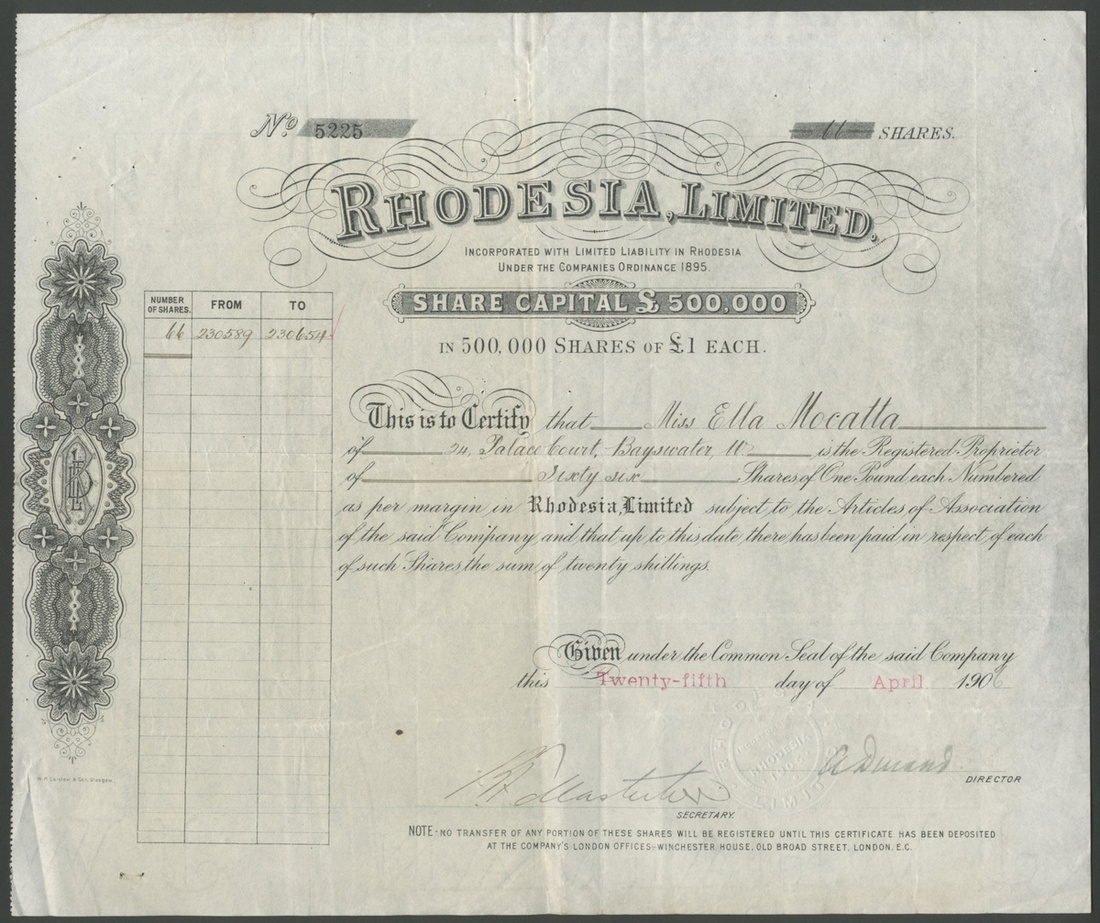 Nº 5225
66 SHARES.
RHODESIA, LIMITED.
INCORPORATED WITH LIMITED LIABILITY IN RHODESIA
UNDER THE COMPANIES ORDINANCE 1895.
SHARE CAPITAL £ 500,000
IN 500,000 SHARES OF £1 EACH.
NUMBER OF SHARES. FROM TO
66 230589 230654
This is to Certify that Miss Ella Mocatta
of 24, Palace Court, Bayswater, W. is the Registered Proprietor
of Sixty six Shares of One Pound each Numbered
as per margin in Rhodesia, Limited subject to the Articles of Association
of the said Company, and that up to this date there has been paid in respect of each
of such Shares, the sum of twenty shillings.
Given under the Common Seal of the said Company
this Twenty-fifth day of April 1906
DIRECTOR
SECRETARY.
NOTE - NO TRANSFER OF ANY PORTION OF THESE SHARES WILL BE REGISTERED UNTIL THIS CERTIFICATE HAS BEEN DEPOSITED
AT THE COMPANY'S LONDON OFFICES:- WINCHESTER HOUSE, OLD BROAD STREET, LONDON, E.C.